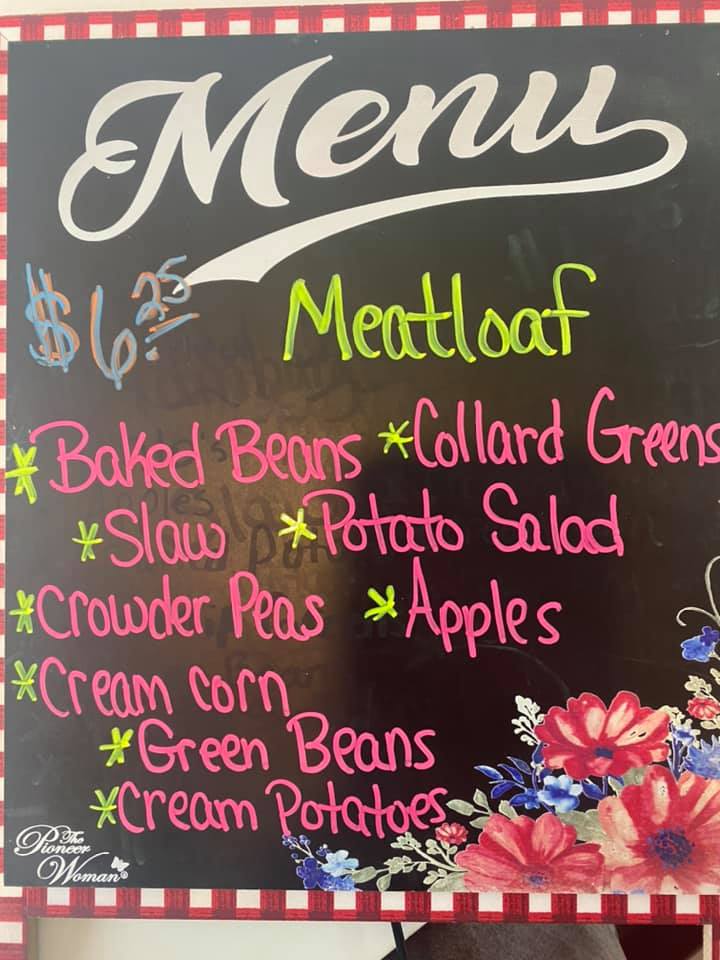 Menu
$6.25
Meatloaf
*Baked Beans *Collard Greens
*Slaw *Potato Salad
*Crowder Peas *Apples
*Cream corn
*Green Beans
*Cream Potatoes
The
Pioneer
Woman®